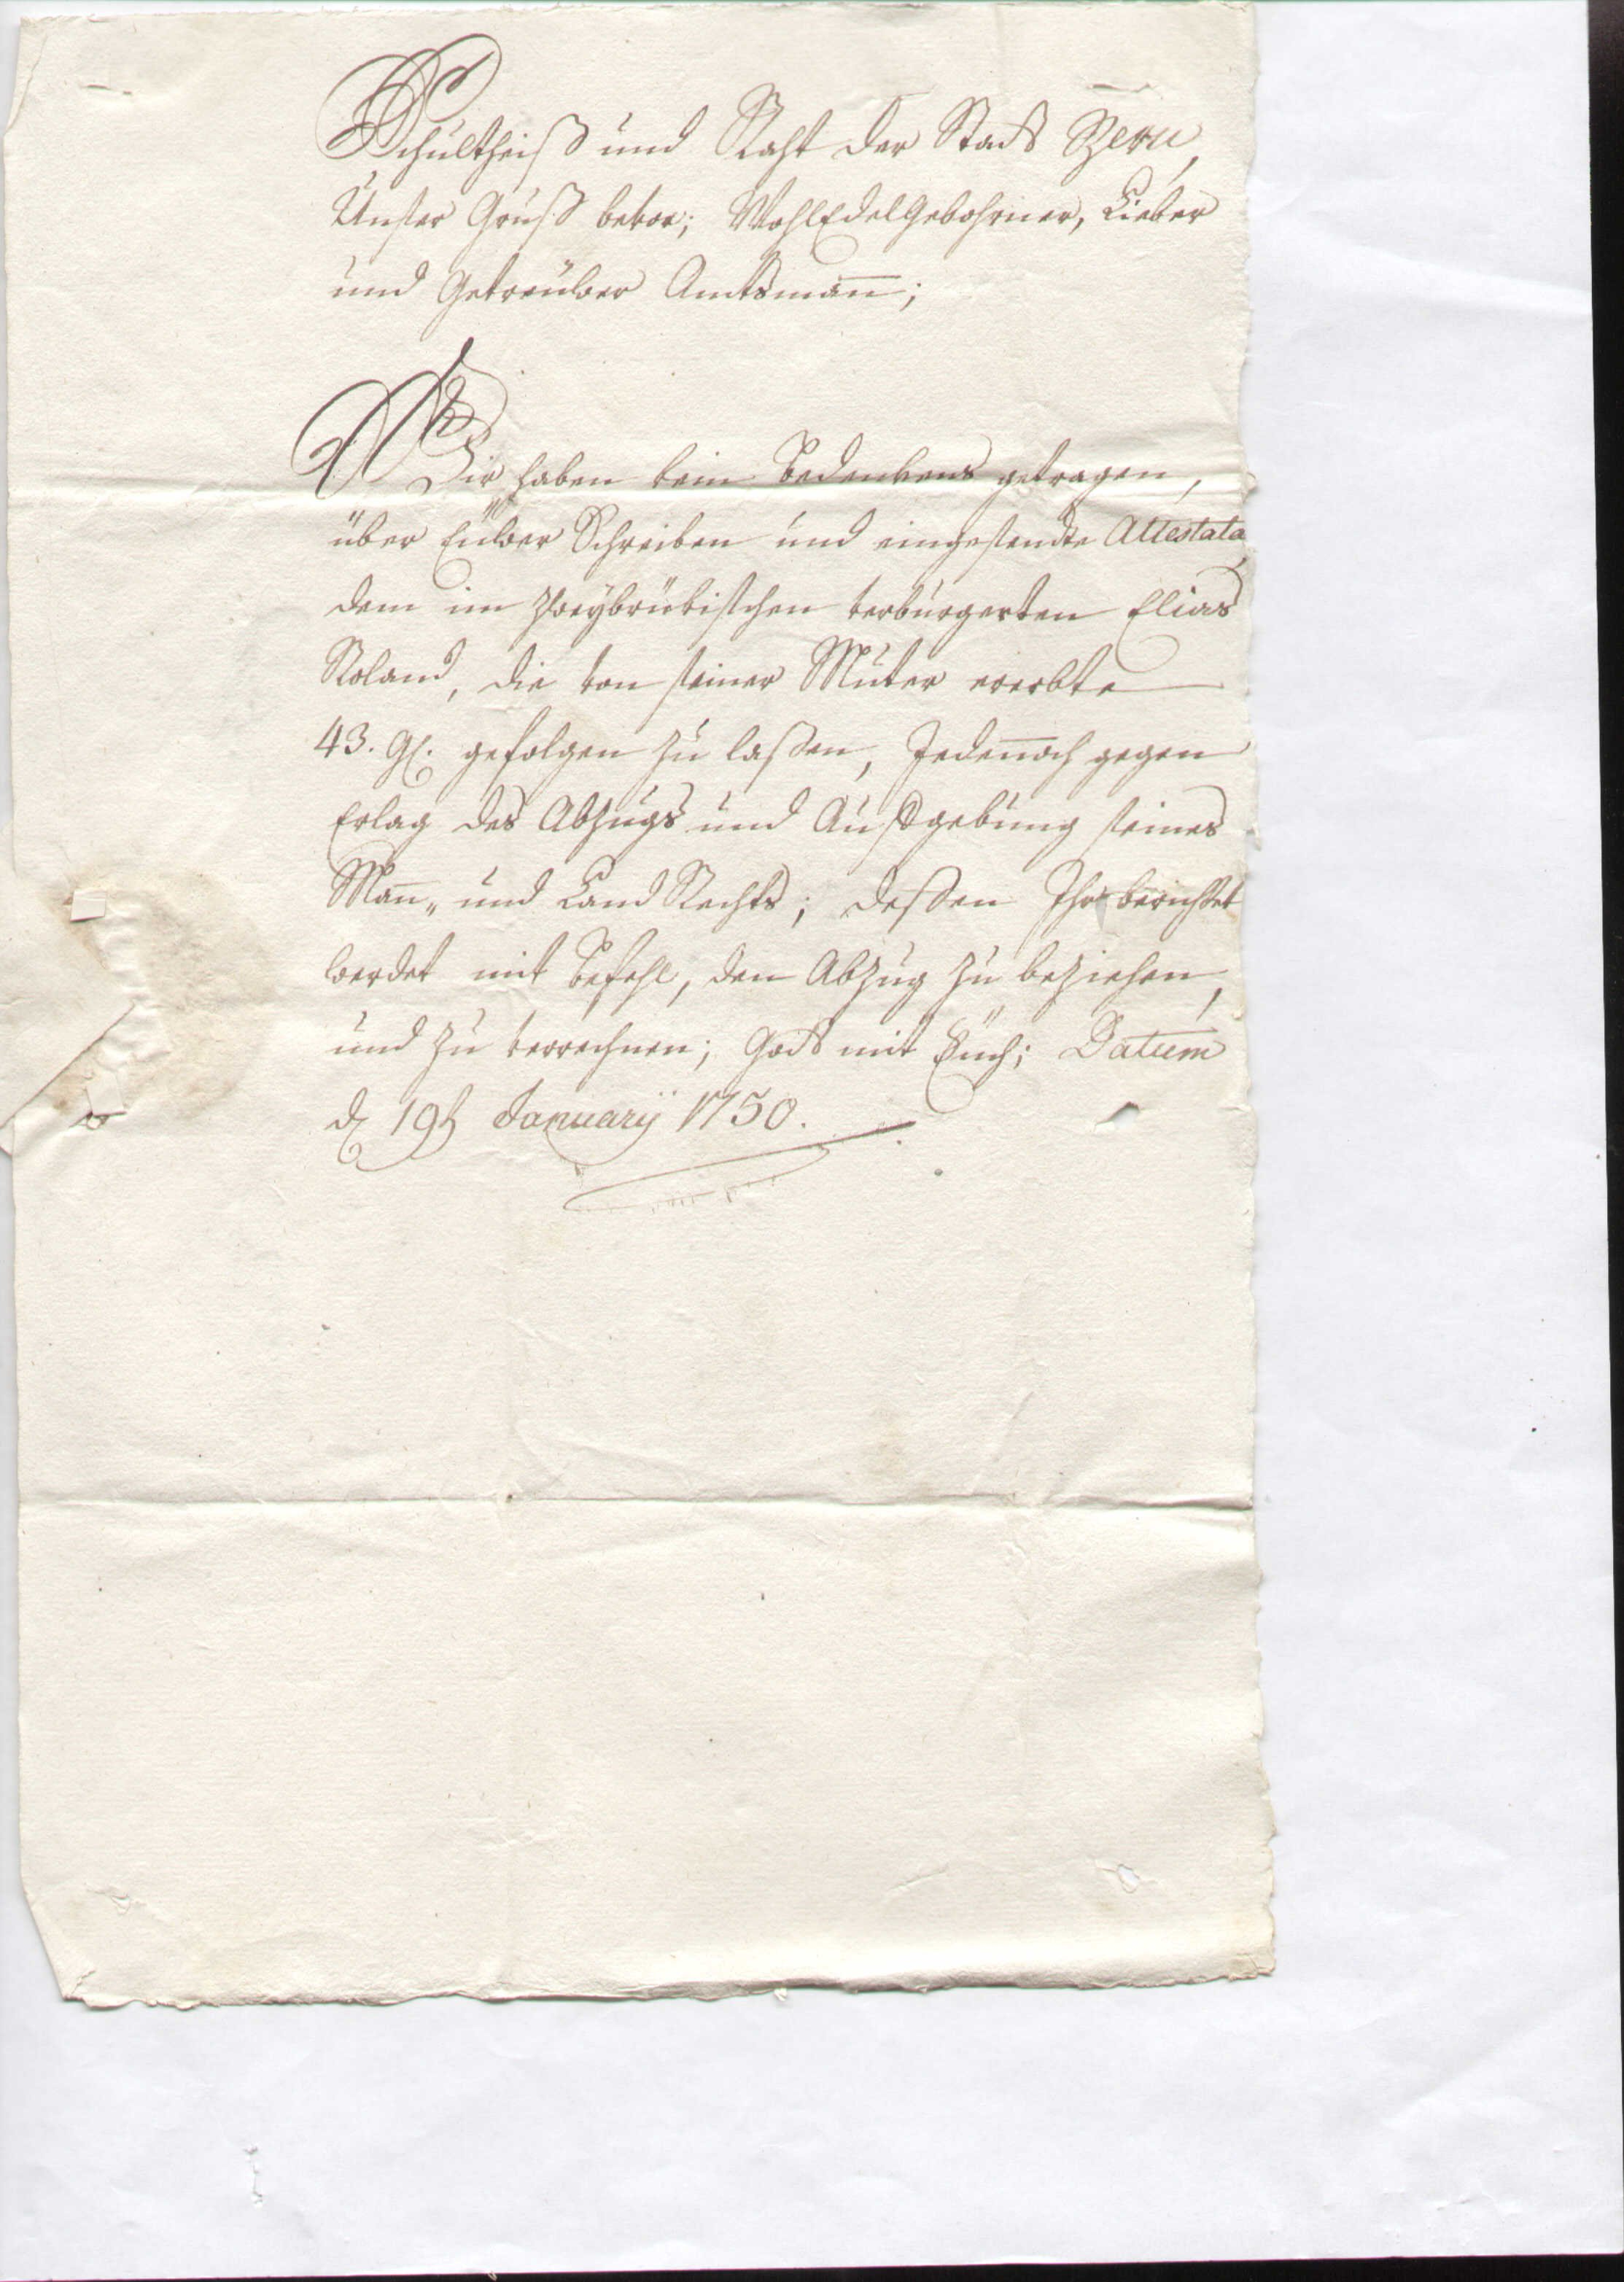 Schultheiß und Raht der Statt Bern,
Unser Gruß bevor; WohlEdelgebohrner, Lieber
und Getreüwer Amtsman̅;
Wir haben kein bedenkens getragen,
über Eüwer Schreiben und eingesandte Attestata
dem im Zweybrükischen verburgerten Elias
Roland, die von seiner Muter ererbte
43. gl. gefolgen zu laßen, Jeden̅och gegen
Erlag des Abzugs und Außgebung seines
Man̅„ und Land Rechts; deßen Ihr berichtet
werdet mit befehl, den Abzug zu beziehen,
und zu verrechnen; Gott mit Eüch; Datum
d 19t Januarÿ 1750.